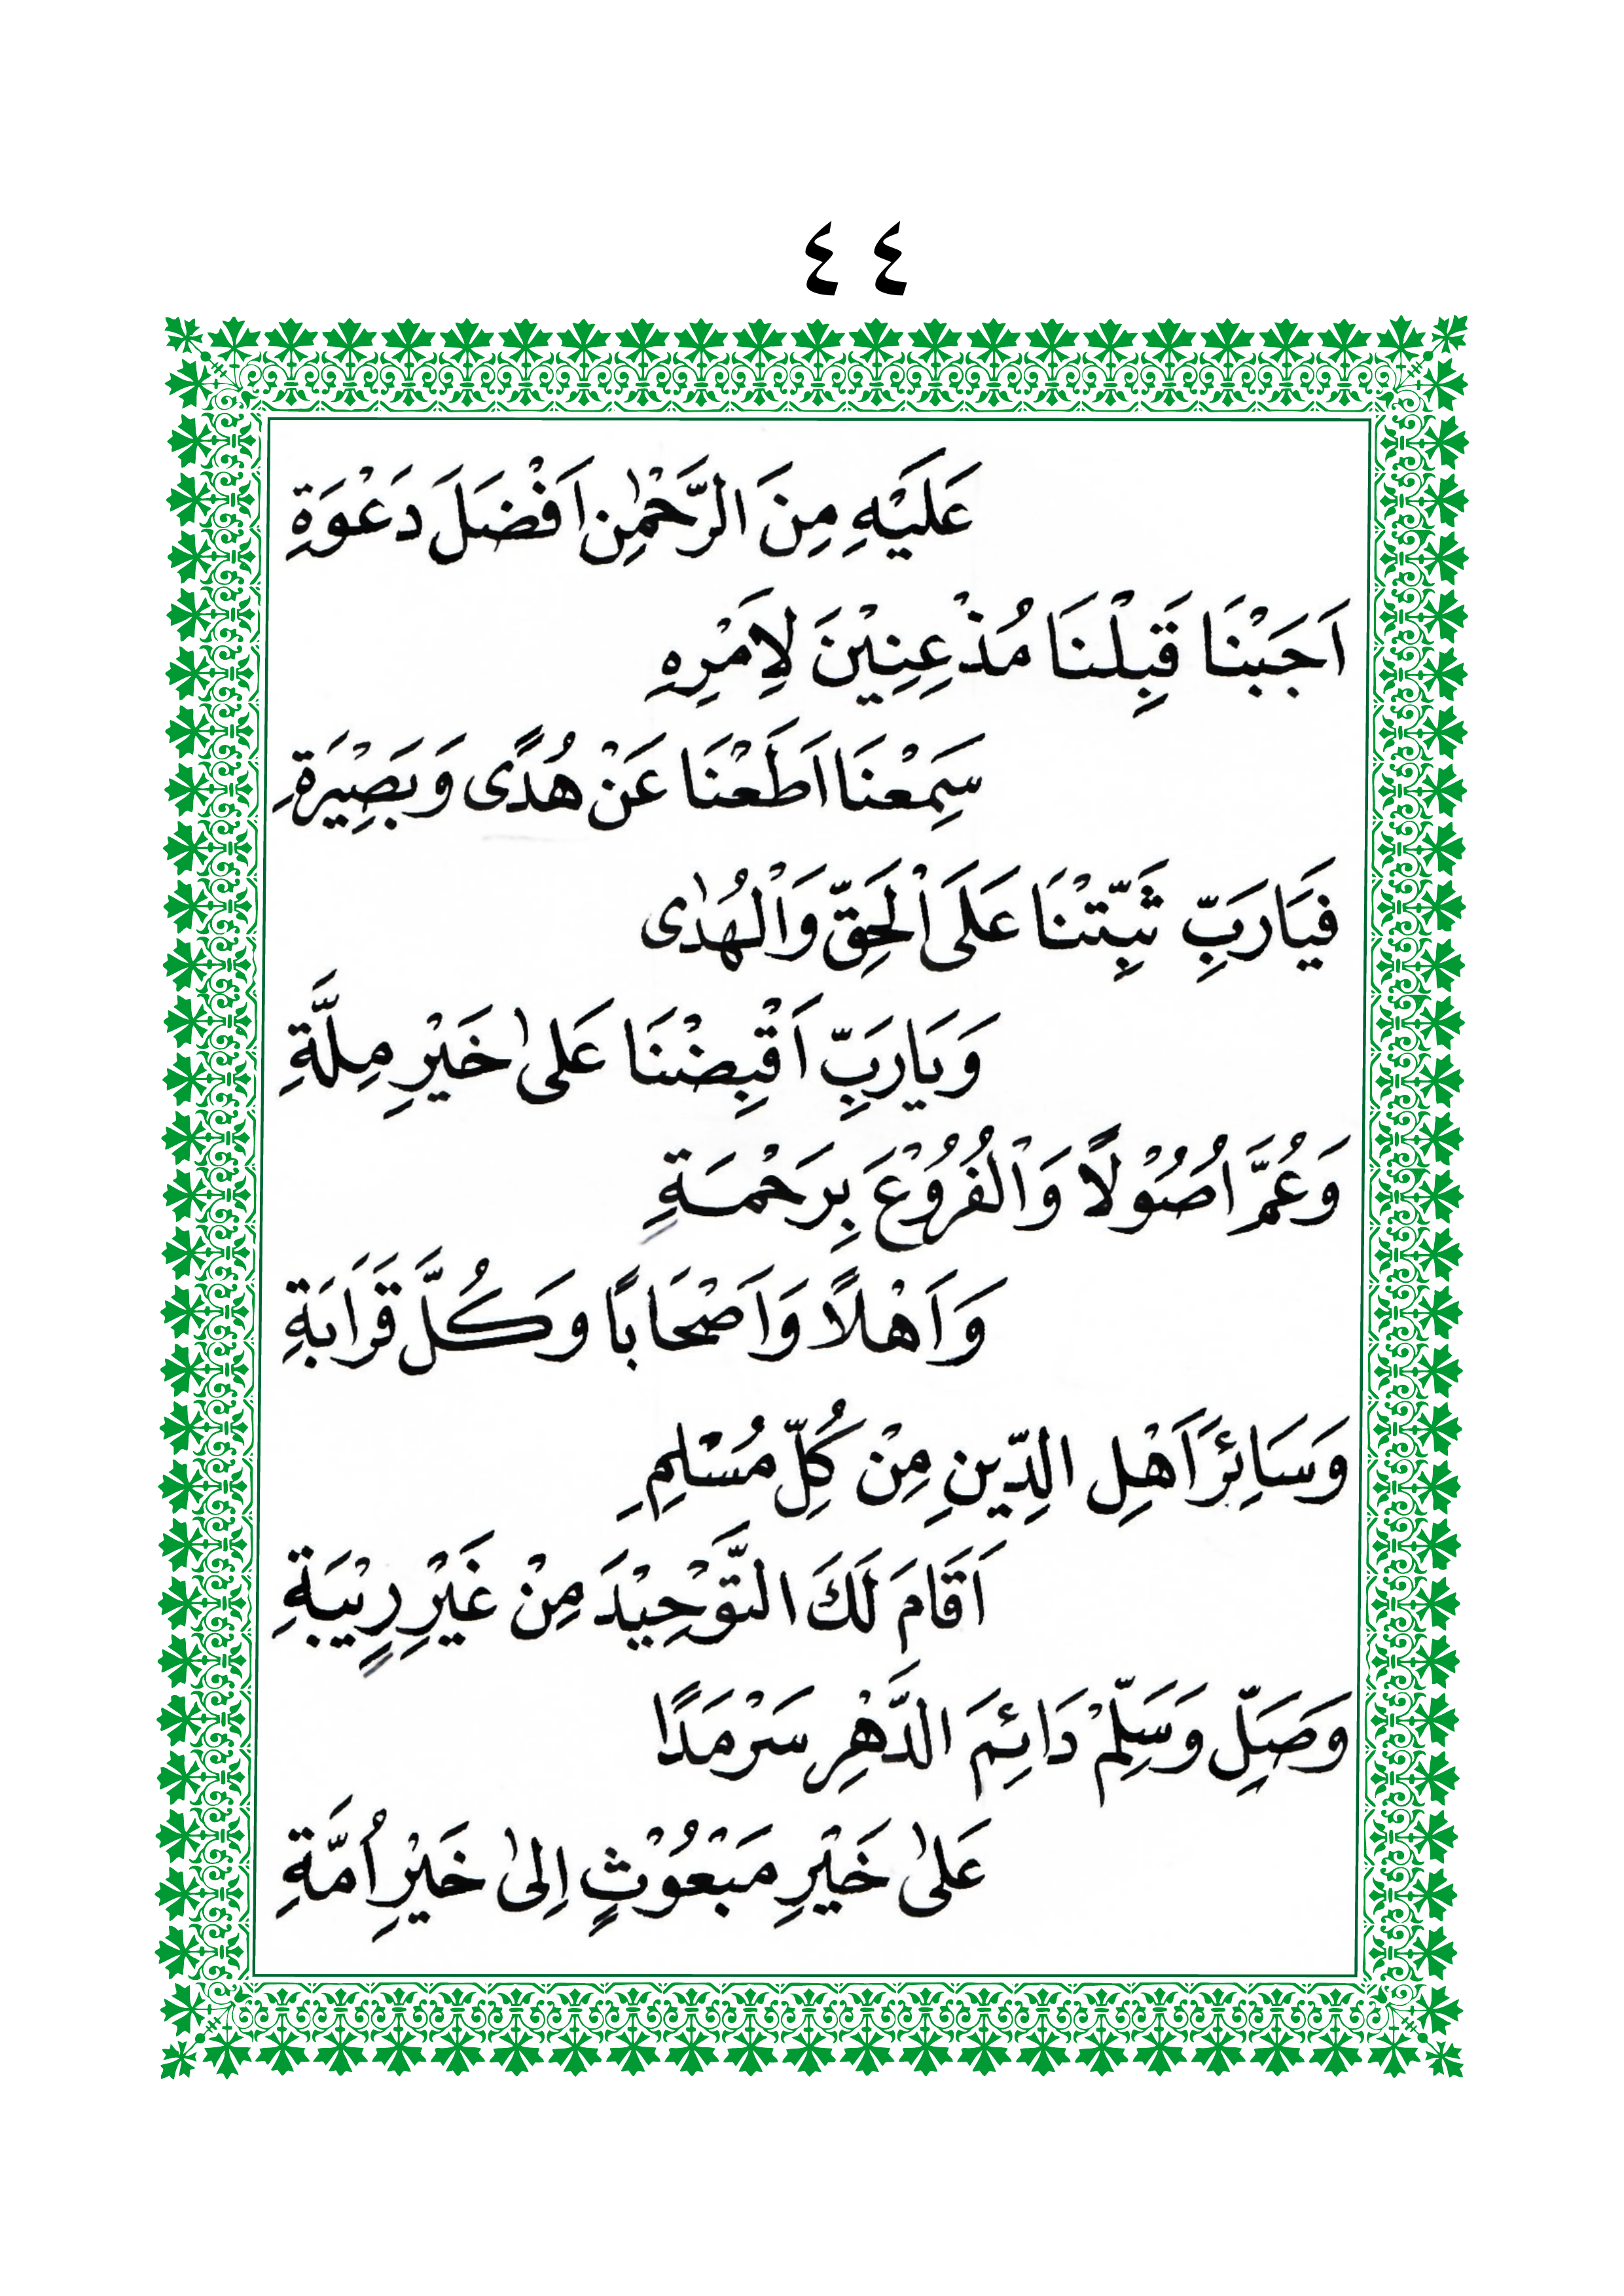 ٤٤
عَلَيْهِ مِنَ الرَّحْمٰنِ اَفْضَلَ دَعْوَةِ
اَجَبْنَا قَبِلْنَا مُذْعِنِيْنَ لِاَمْرِهِ
سَمِعْنَا اَطَعْنَا عَنْ هُدًى وَبَصِيْرَةِ
فَيَارَبِّ ثَبِّتْنَا عَلَى اْلحَقِّ وَاْلهُدٰى
وَيَارَبِّ اَقْبِضْنَا عَلىٰ خَيْرِ مِلَّةِ
وَعُمَّ اُصُوْلًا وَاْلفُرُوْعَ بِرَحْمَةِ
وَاَهْلًا وَاَصْحَابًا وَكُلَّ قَرَابَةِ
وَسَائِرَ اَهْلِ الدِّينِ مِنْ كُلِّ مُسْلِمِ
اَقَامَ لَكَ التَّوْحِيْدَ مِنْ غَيْرِ رِيْبَةِ
وَصَلِّ وَسَلِّمْ دَائِمَ الدَّهْرِ سَرْمَدًا
عَلىٰ خَيْرِ مَبْعُوْثٍ اِلىٰ خَيْرِ اُمَّةِ